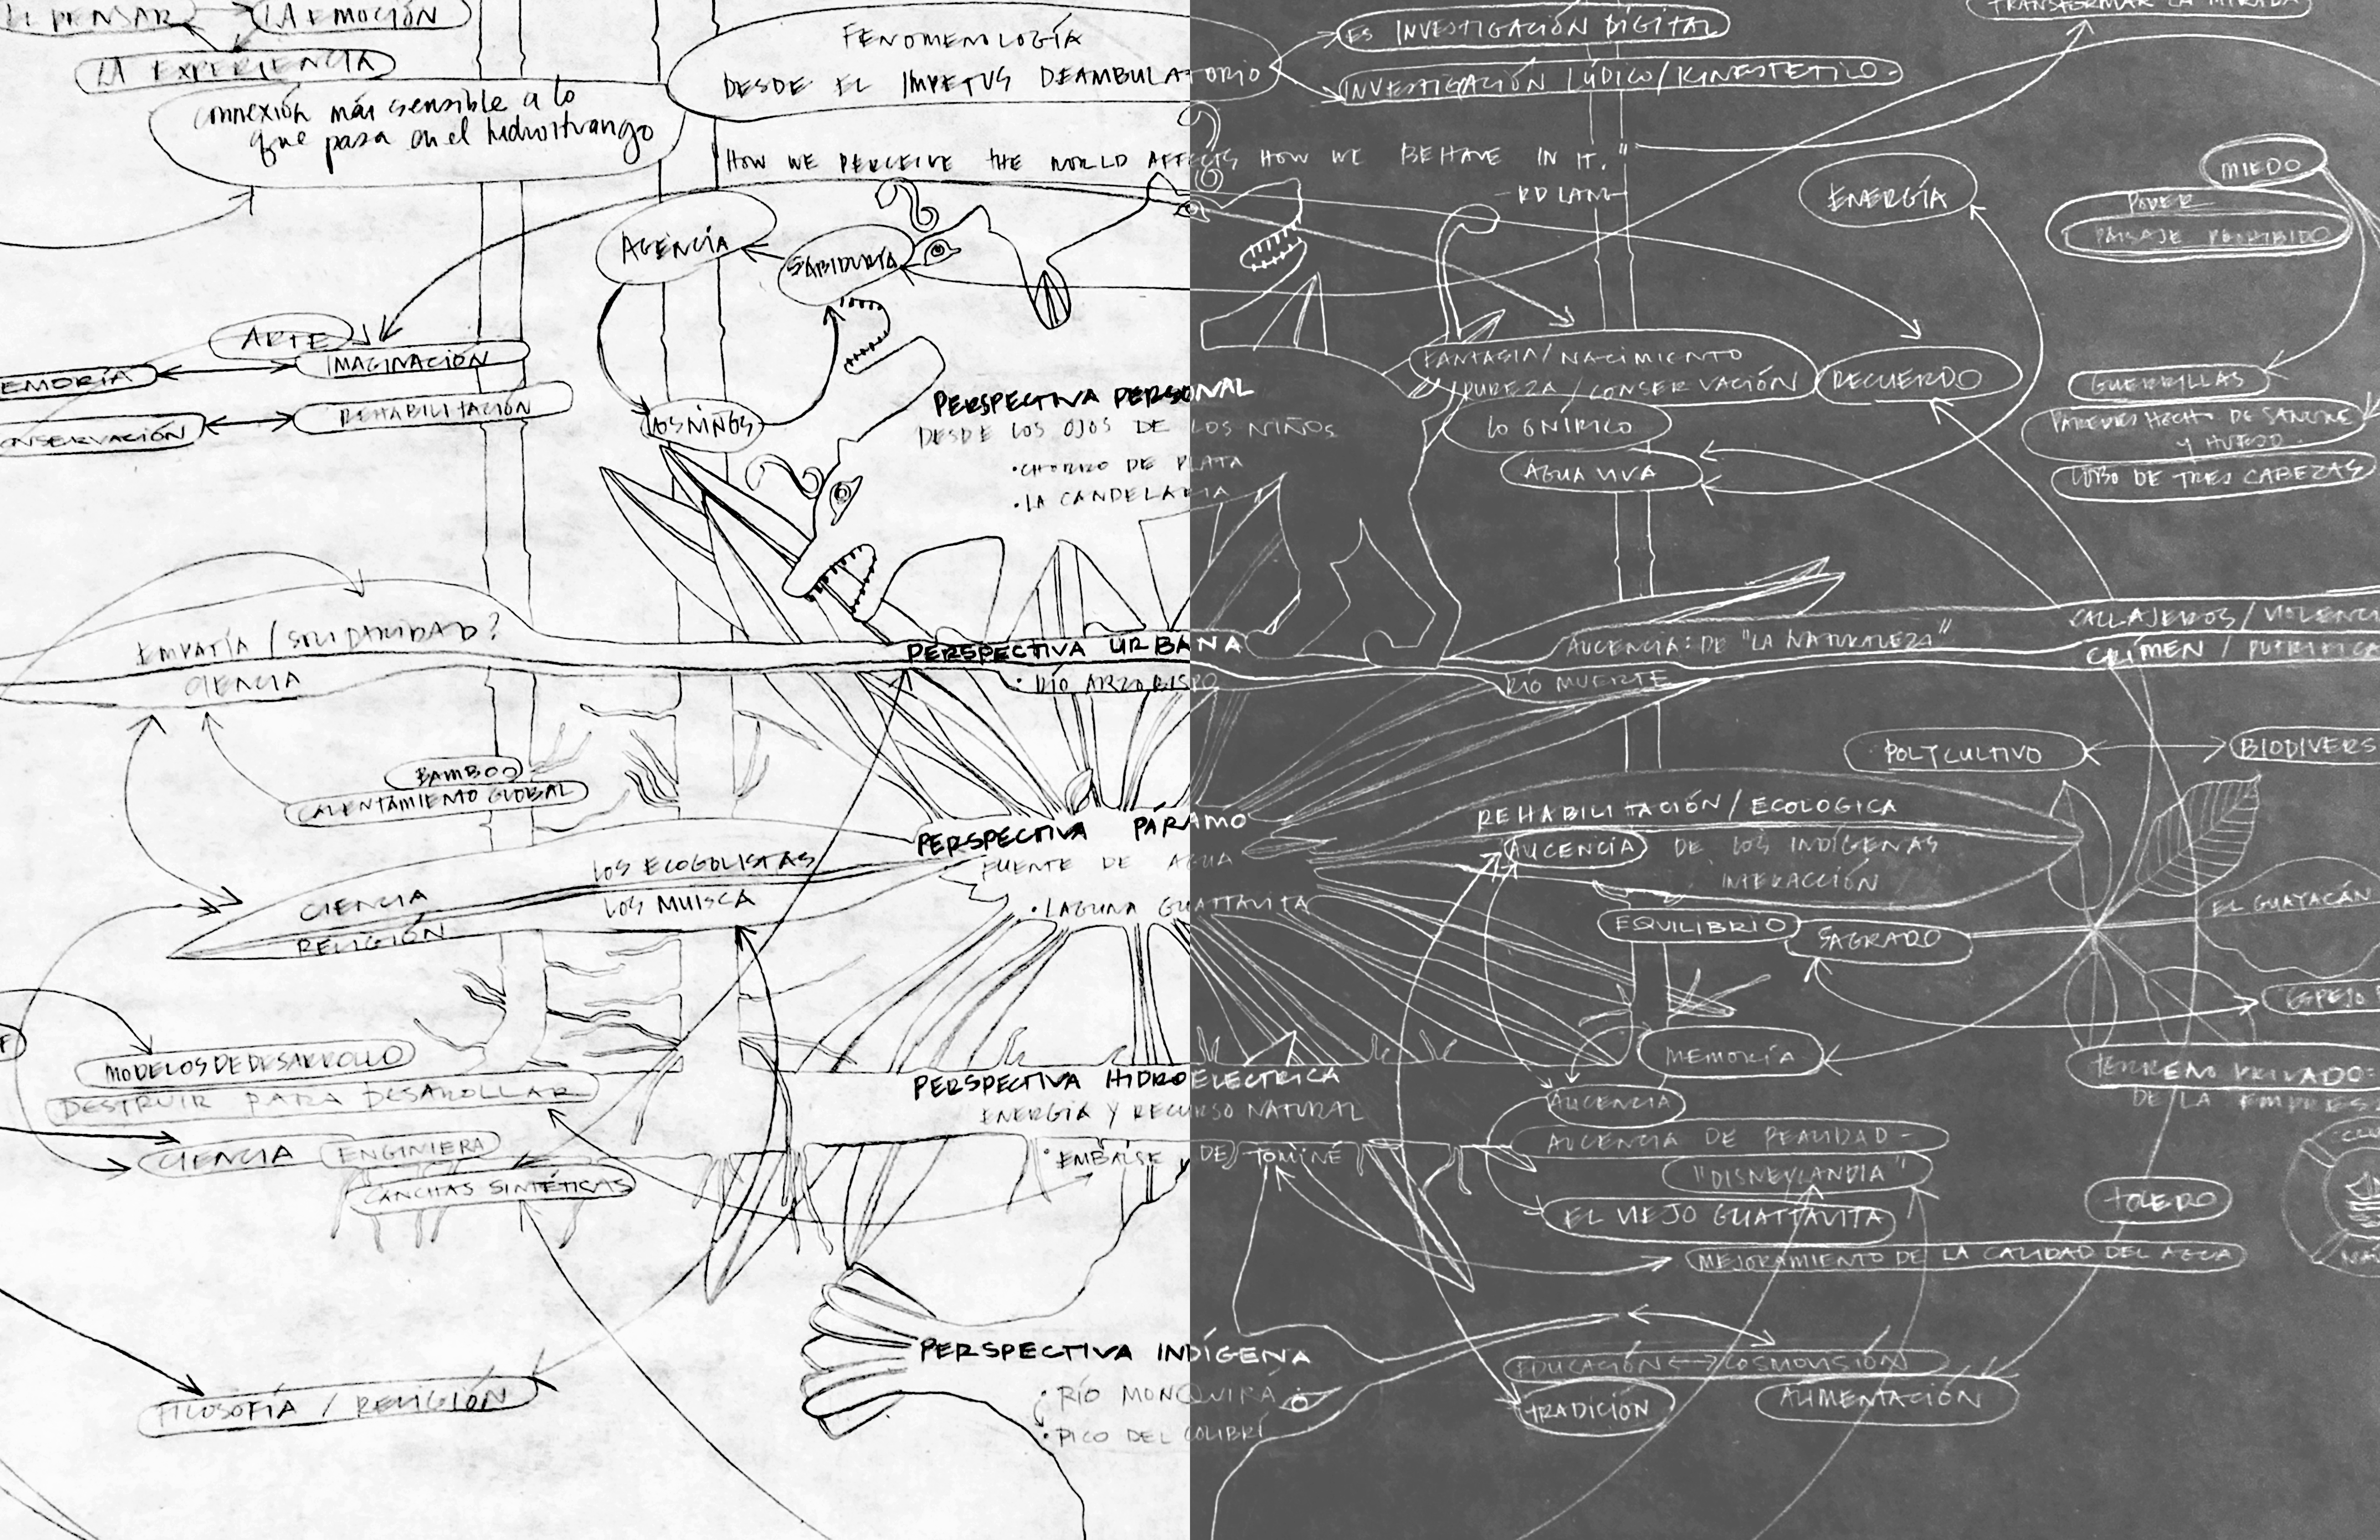 EL PENSAR
LA EMOCIÓN
LA EXPERIENCIA
connexión más sensible a lo
que pasa en el hidroituango
FENOMENOLOGÍA
DESDE EL IMPETUS DEAMBULATORIO
ES INVESTIGACIÓN DIGITAL
INVESTIGACIÓN LÚDICO/KINESTETICO
TRANSFORMAR LA MIRADA
HOW WE PERCEIVE THE WORLD AFFECTS HOW WE BEHAVE IN IT."
-RD LANG-
AGENCIA
SABIDURÍA
ENERGÍA
MIEDO
PODER
PAISAJE PROHIBIDO
ARTE
IMAGINACIÓN
EMORIA
REHABILITACIÓN
ONSERVACIÓN
LOS NIÑOS
PERSPECTIVA PERSONAL
DESDE LOS OJOS DE LOS NIÑOS
• CHORRO DE PLATA
• LA CANDELARIA
FANTASIA/NACIMIENTO
PUREZA/CONSERVACIÓN
RECUERDO
LO ONÍRICO
AGUA VIVA
GUERRILLAS
PAREDES HECHO DE SANGRE
Y HUESO.
LOBO DE TRES CABEZAS
EMPATÍA/SOLIDARIDAD?
CIENCIA
PERSPECTIVA URBANA
• RÍO ARZOBISPO
AUCENCIA: DE "LA NATURALEZA"
RÍO MUERTE
CALLAJEROS/VIOLENC
CRÍMEN / PUTRIFICA
BAMBOO
CALENTAMIENTO GLOBAL
POLYCULTIVO
BIODIVERS
PERSPECTIVA PÁRAMO
FUENTE DE AGUA
• LAGUNA GUATTAVITA
LOS ECOGOLISTAS
LOS MUISCA
CIENCIA
RELIGIÓN
REHABILITACIÓN/ECOLOGICA
AUCENCIA DE LOS INDÍGENAS
INTERACCIÓN
EQUILIBRIO
SAGRADO
EL GUAYACÁN
ESPEJO
MEMORÍA
MODELOS DE DESARROLLO
DESTRUIR PARA DESAROLLAR
CIENCIA
ENGINIERA
CANCHAS SINTÉTICAS
PERSPECTIVA HIDROELECTRICA
ENERGÍA Y RECURSO NATURAL
• EMBALSE DE TOMINÉ
TERRENO PRIVADO:
DE LA EMPRES
AUCENCIA
AUCENCIA DE REALIDAD -
"DISNEYLANDIA"
EL VIEJO GUATTAVITA
TOLERO
MEJORAMIENTO DE LA CALIDAD DEL AGUA
PERSPECTIVA INDÍGENA
• RÍO MONQUIRÁ
• PICO DEL COLIBRÍ
EDUCACIÓN <-> COSMOVISIÓN
TRADICIÓN
ALIMENTACIÓN
FILOSOFÍA / RELIGIÓN